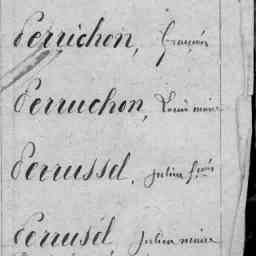 Perrichon, François
Perruchon, Louis marie
Perrussel, julien frçois
Perrusél Julien marie